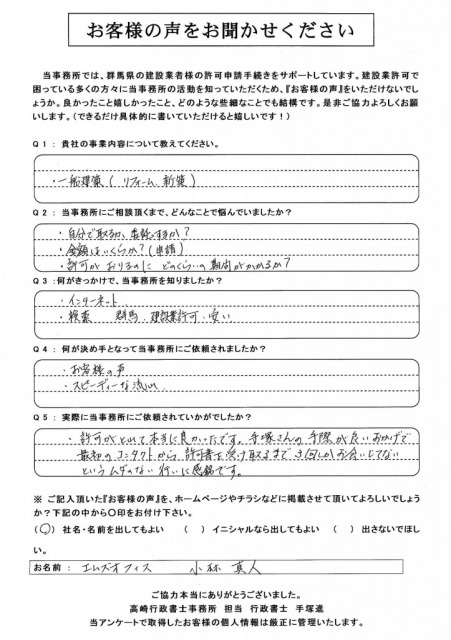 お客様の声をお聞かせください
当事務所では、群馬県の建設業者様の許可申請手続きをサポートしています。建設業許可で
困っている多くの方々に当事務所の活動を知っていただくため、『お客様の声』をいただけないでし
ょうか。良かったこと嬉しかったこと、どのような些細なことでも結構です。是非ご協力よろしくお願
いします。(できるだけ具体的に書いていただけると嬉しいです！)
Q１： 貴社の事業内容について教えてください。
・一般建築（リフォーム、新築）
Q２： 当事務所にご相談頂くまで、どんなことで悩んでいましたか？
・自分で取るか、委託するか？
・金額はいくらか？（申請）
・許可がおりるのに どのくらいの期間がかかるか？
Q３：何がきっかけで、当事務所を知りましたか？
・インターネット
・検索 群馬、建設業許可・安い
Q４： 何が決め手となって当事務所にご依頼されましたか？
・お客様の声
・スピーディーな
Q５： 実際に当事務所にご依頼されていかがでしたか？
・許可がとれて本当に良かったです。手塚さんの手際が良いおかげで
最初のコンタクトから、許可書を受け取るまで3回しかお会いしてない
というムダのない行いに感銘です。
※ ご記入頂いた『お客様の声』を、ホームページやチラシなどに掲載させて頂いてよろしいでしょう
か？下記の中から〇印をお付け下さい。
（〇）社名・名前を出してもよい （ ）イニシャルなら出してもよい （ ）出さないでほし
い。
お名前： エムズオフィス 小林 真人
ご協力本当にありがとうございました。
高崎行政書士事務所 担当 行政書士 手塚進
当アンケートで取得したお客様の個人情報は厳正に管理いたします。